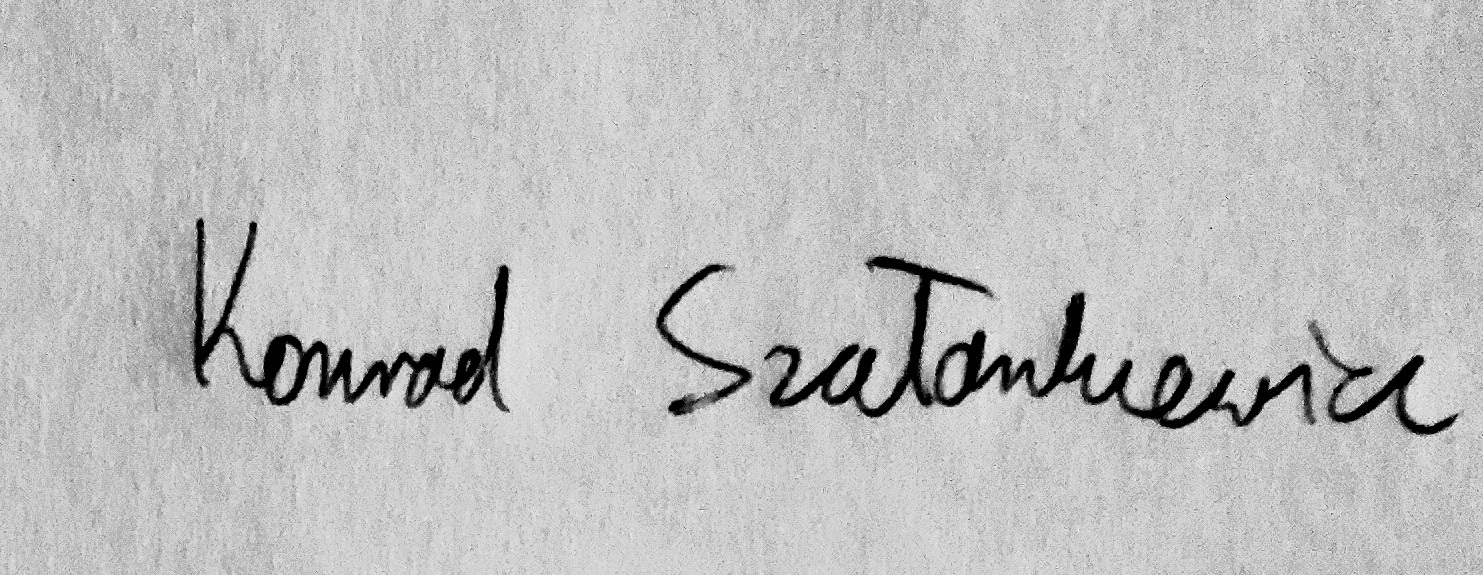 Konrad Szałankiewicz